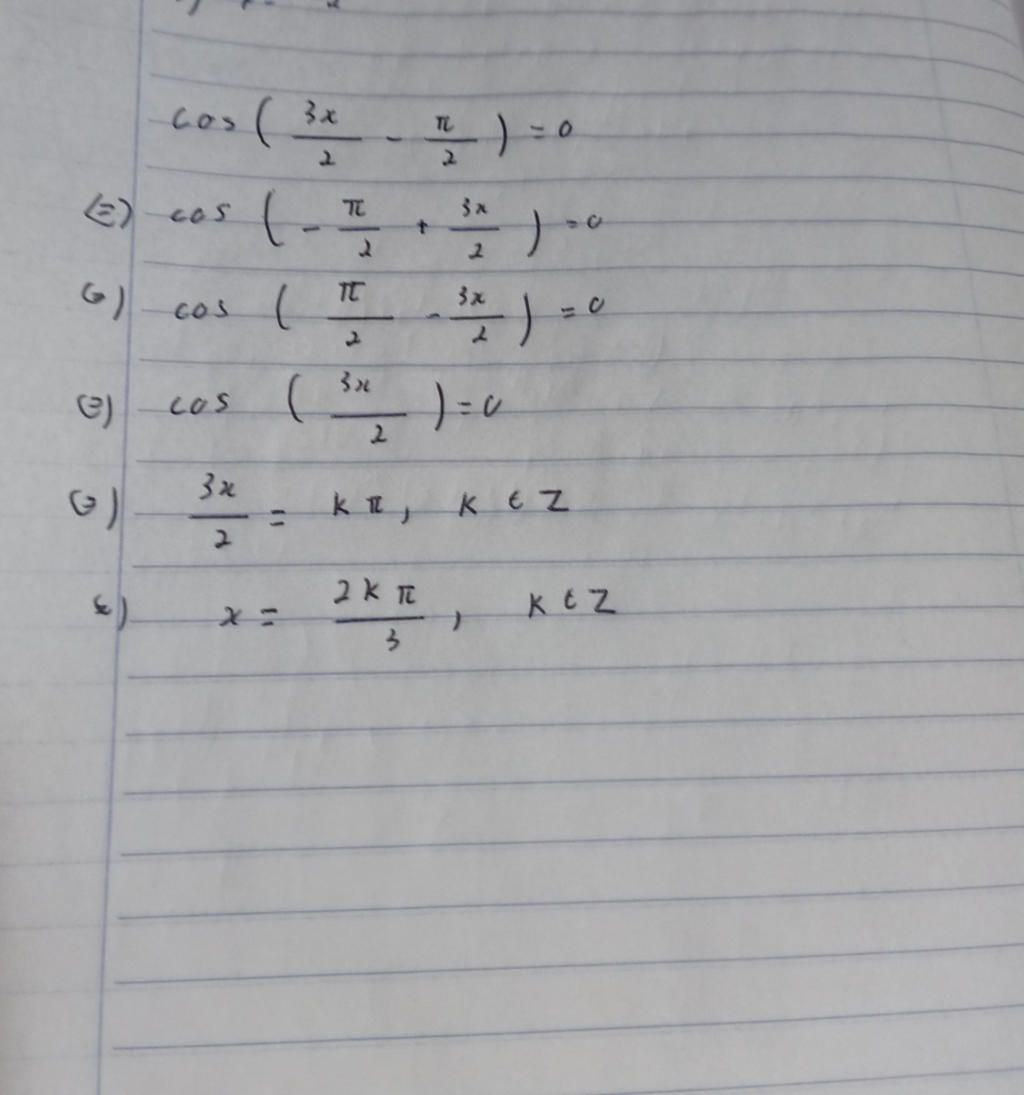 cos ( 3x/2 - π/2 ) = 0
(=) cos ( - π/2 + 3x/2 ) = 0
(=) cos ( π/2 - 3x/2 ) = 0
(=) cos ( 3x/2 ) = 0
(=) 3x/2 = kπ, k ∈ Z
(=) x = 2kπ/3, k ∈ Z